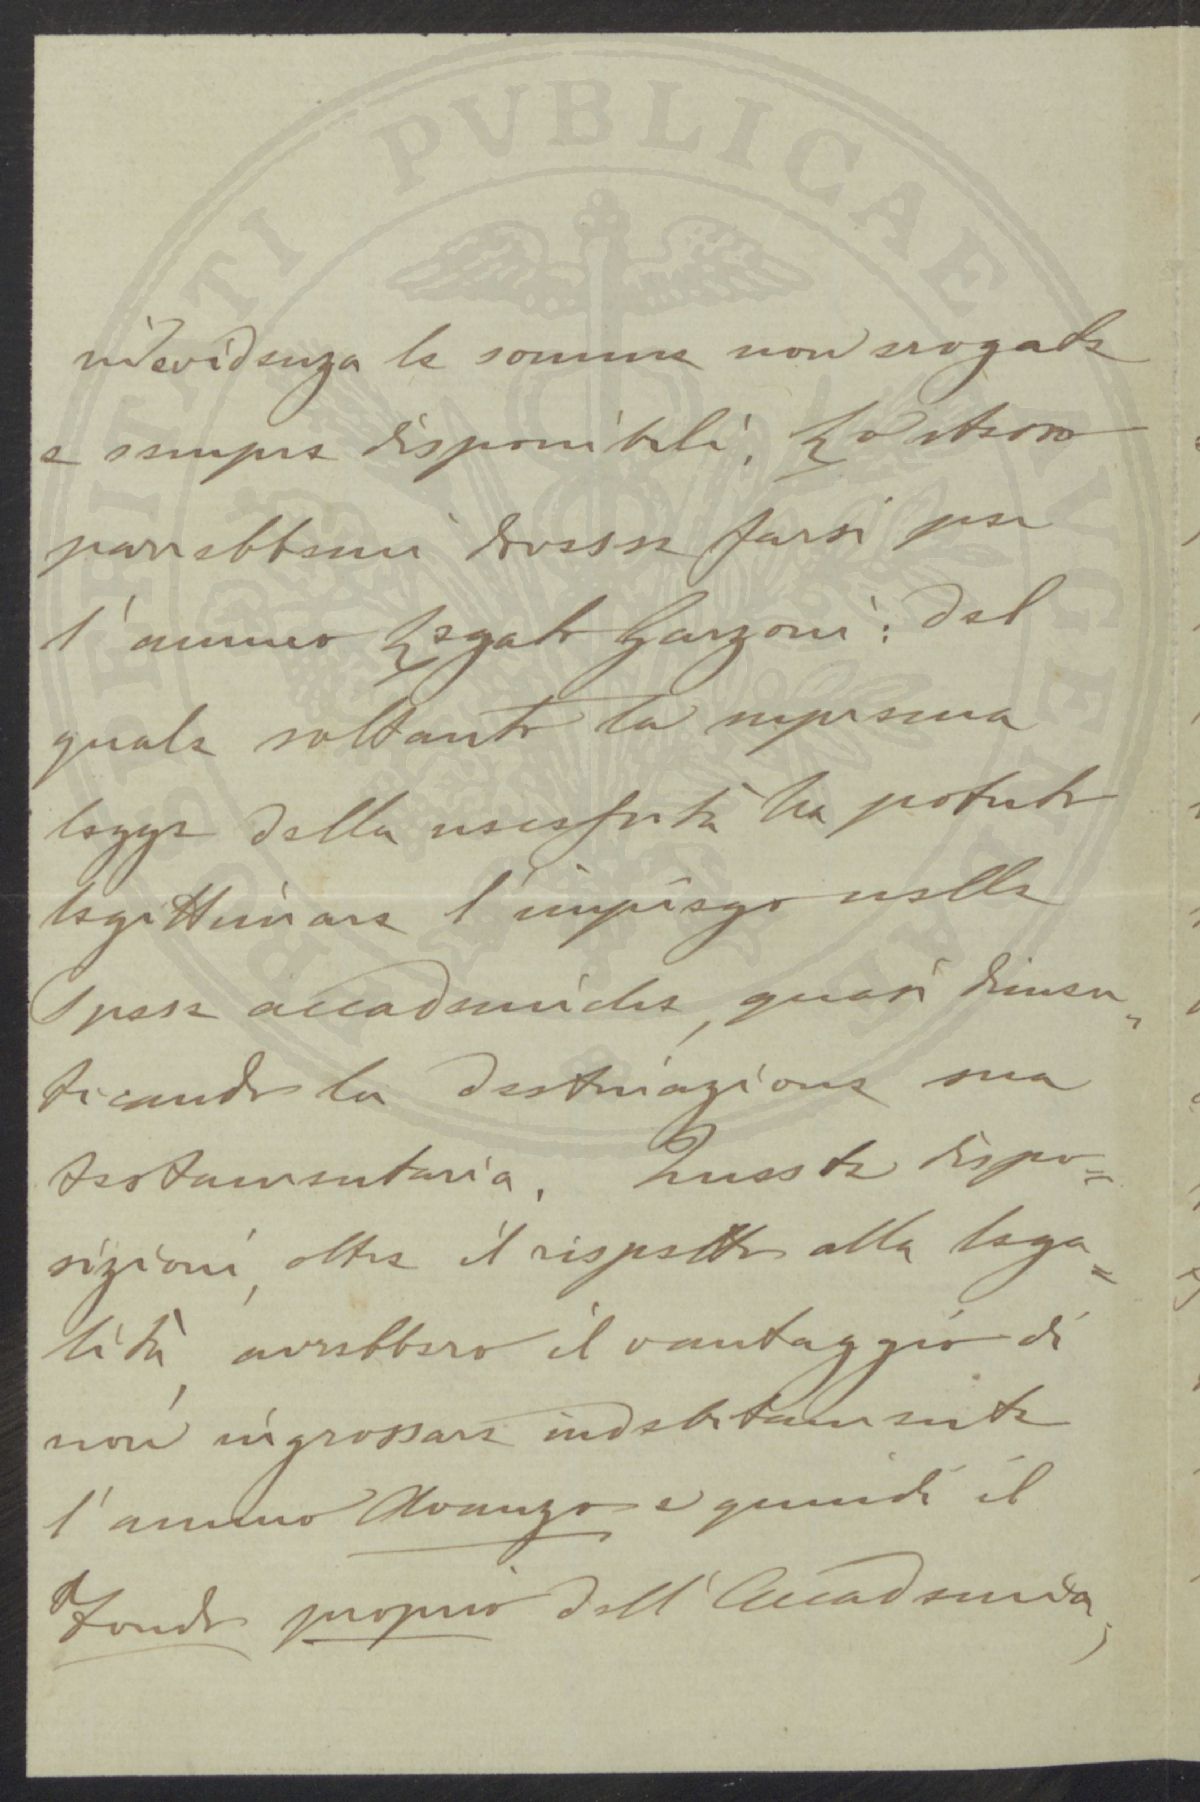 in evidenza le somme non erogate
e sempre disponibili. Lo stesso
parrebbemi dovesse farsi per
l'annuo Legato Garzoni: del
quale soltanto la suprema
legge della necessità ha potuto
legittimare l'impiego nelle
spese accademiche, quasi dimen„
ticando la destinazione sua
testamentaria. Queste dispo=
sizioni, oltre il rispetto alla lega=
lità, avrebbero il vantaggio di
non ingrossare indebitamente
l'annuo Avanzo e quindi il
Fondo proprio dell'Accademia,
PROSPERITATI PVBLICAE AVGENDAE